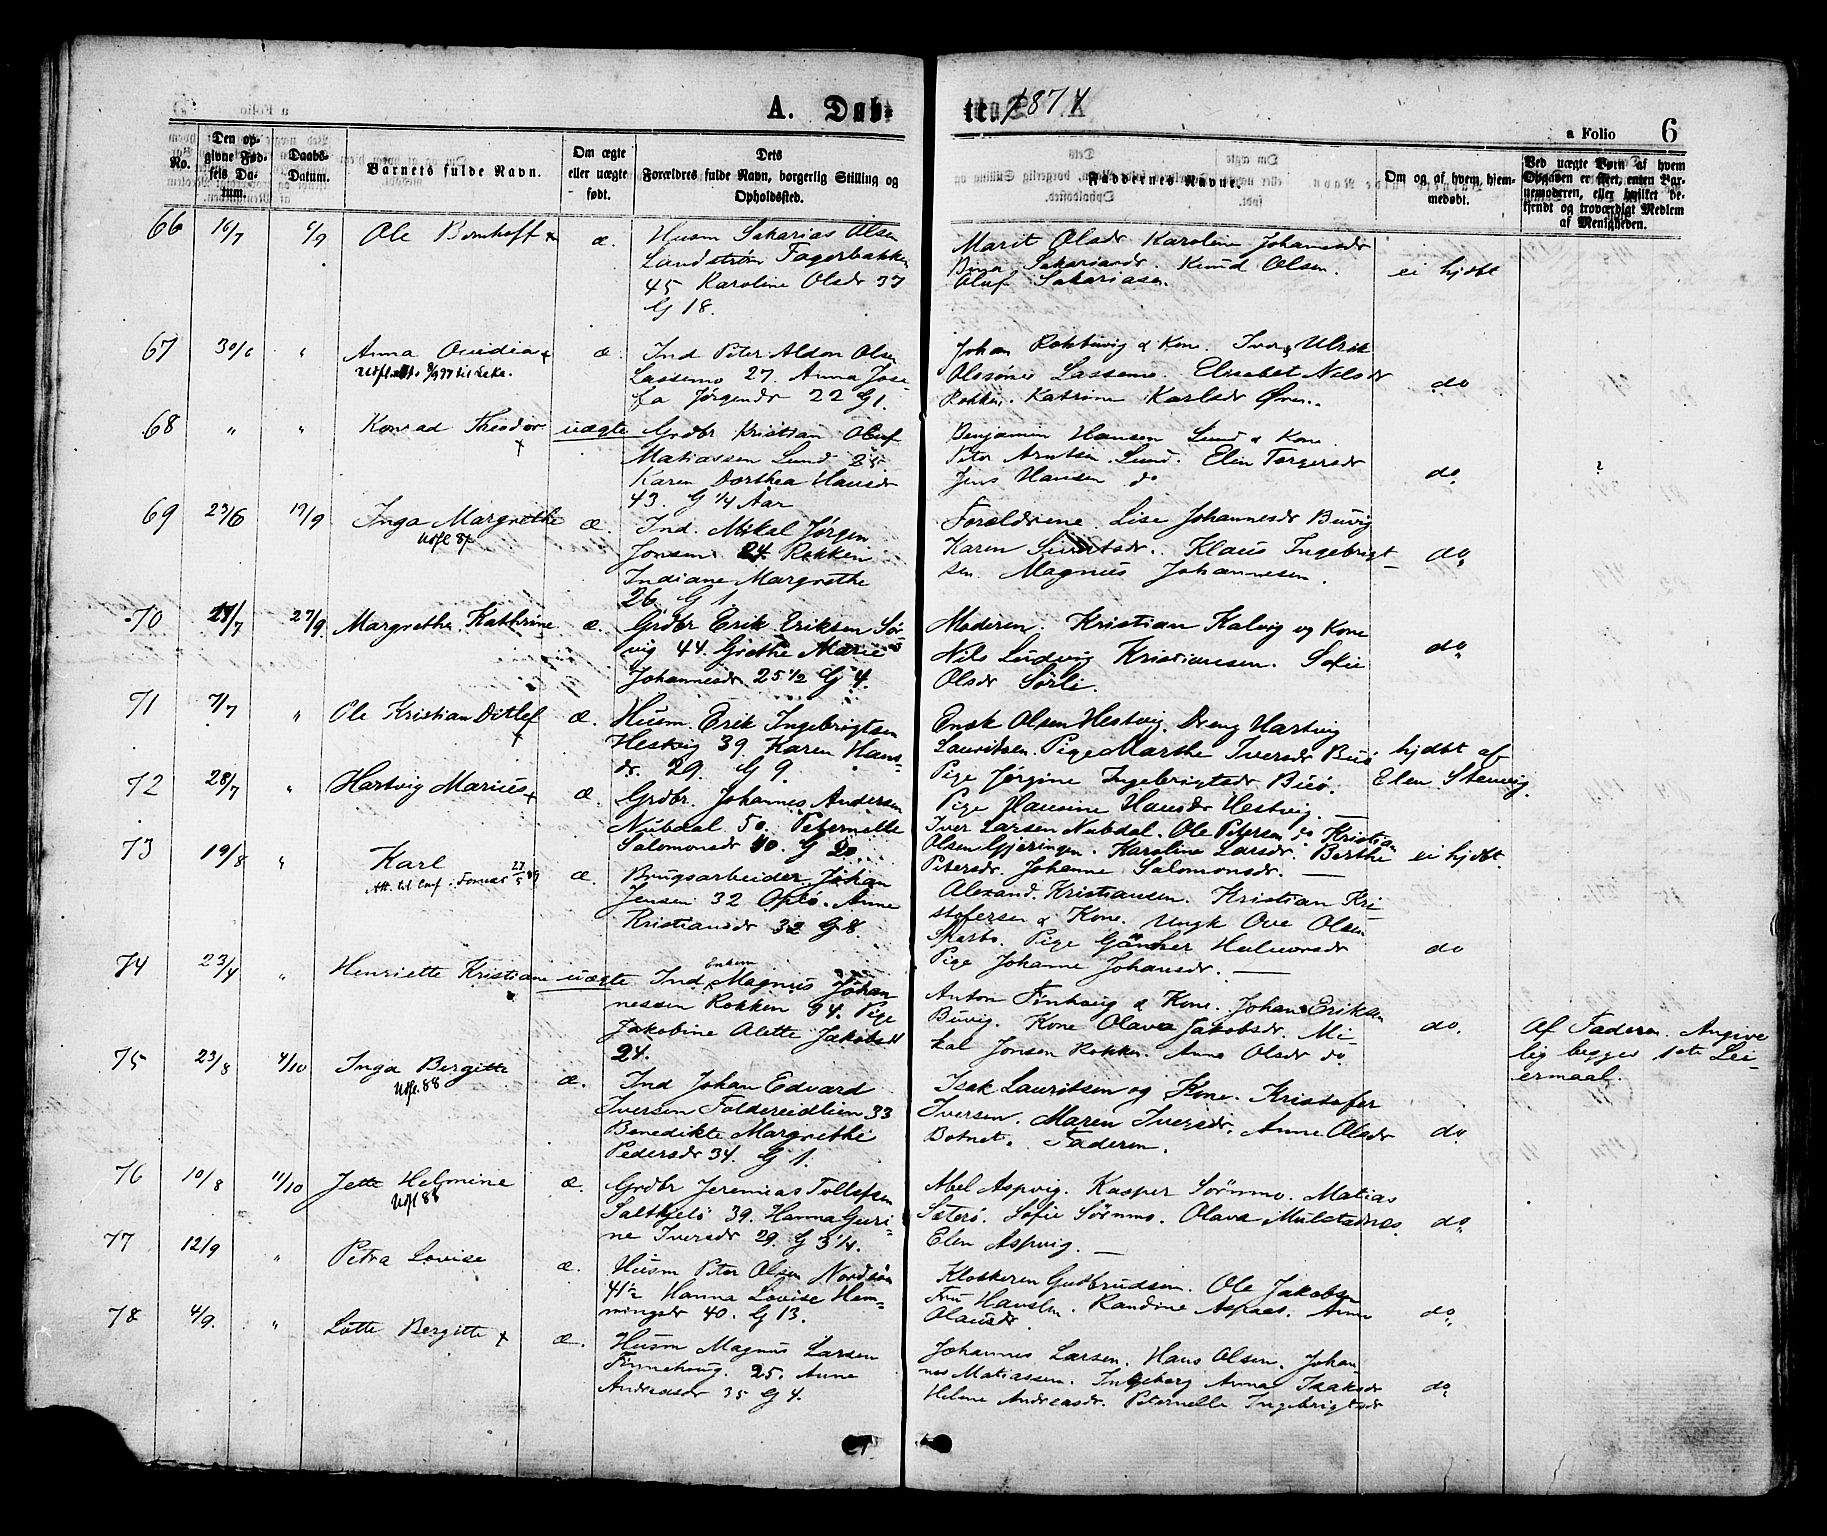 A. Døb- te 1874
a Folio 6
No.
Den op-
givne Fød-
sels Da-
tum.
Daabs-
Datum.
Barnets fulde Navn.
Om ægte
eller uægte
født.
Dets
Forældres fulde Navn, borgerlig Stilling og
Opholdssted.
Faddernes Navne.
Om og af hvem hjem-
medøbt.
Ved uægte Børn af hvem
Opgaven er sket, enten Bar-
nemoderen, eller hvilket be-
kjendt og troværdigt Medlem
af Menigheden.
66 16/7 6/9 Ole Bernhoff + æ.
Husm Sakarias Olsen
Landstrøm Fagerbakken
45 Karoline Olsdr 37
G 18.
Marit Olsdr Karoline Johannesdr
Sakariasdr. Knud Olsen.
Oluf Sakariasen.
ei hjdbt
67 30/6 " Anna Ovidia +
æ.
Ind Peter Aldon Olsen
Lassemo 27. Anna Jose-
fa Jørgensdr 22 G 1.
Johan Rokbuvig & Kone. Ulrik
Olssøner Lassemo. Elisabet Nilsdr
Rokken. Katrine Karlsdr
do
68 " " Konrad Theodor +
uægte
Grdbr Kristian Oluf
Matiassen Lund 25
Karen Dorthea Hansdr
43. G 1/4 Aar
Benjamin Hansen Lund & Kone.
Peter Arntsen Lund. Elen Torgersdr
Jens Hansen do
do
?
69 23/6 19/9 Inga Margrethe
Udfl 87
æ.
Ind. Mikal Jørgen
Jonsen 24. Rokken
Indiane Margrethe
26 G 1
Forældrene. Lise Johannesdr Buvig
Karen Sivertsdr. Klaus Ingebrigt-
sen. Magnus Johannesen.
do
70 27/9 Margrethe Kathrine æ.
Grdbr Erik Eriksen Sør-
vig 44. Grethe Marie
Johannesdr 25 1/2 G 4.
Moderen. Kristian Kalvig og Kone
Nils Ludvig Kristiansen. Sofie
Olsdr Sørli.
do
71 7/7 " Ole Kristian Ditlef +
æ.
Husm. Erik Ingebrigtsen
Hestvig 39 Karen Hans-
dr. 29. G 9.
Enok Olsen Hestvig. Dreng Hartvig
Lauritsen. Pige Marthe Iversdr Buø
Pige Jørgine Ingebrigtsdr Buø.
Pige Hansine Hansdr Hestvig. —
hjdbt af
Elen Stenvig.
72 28/7 " Hartvig Marius +
æ.
Grdbr. Johannes Andersen
Nubdal 50. Peternelle
Salomonsdr 40. G 20
Iver Larsen Nubdal. Ole Petersen do Kristian
Olsen Gjeringen. Karoline Larsdr. Berthe
Petersdr. Johanne Salomonsdr. —
ei hjdbt.
73 19/8 " Karl
æ.
Brugsarbeider Johan
Jensen 32 Oplø. Anne
Kristiansdr 32 G 8.
Alexand. Kristiansen. Kristian Kri-
stofersen & Kone. Ungk Ove Olsen
Skarbo. Pige Halvorsdr
Pige Johanne Johansdr. —
do
74 23/4 " Henriette Kristiane uægte
Enkem
Ind. Magnus Johan-
nessen Rokken 34. Pige
Jakobine Alette Jakobsdr
24.
Anton Finhaug & Kone. Johan Eriksen
Buvig. Kone Olava Jakobsdr. Mi-
kal Jonsen Rokken. Anne Olsdr do
do.
Af Faderen. Angive-
lig begges 1ste Lei-
ermaal.
75 23/8 4/10 Inga Bergitte
Udfl. 88
æ.
Ind Johan Edvard
Iversen Foldereidlien 33
Benedikte Margrethe
Pedersdr 34. G 1.
Isak Lauritsen og Kone. Kristofer
Iversen. Maren Iversdr. Anne Olsdr
Botnet. Faderen.
do.
76 10/8 11/10 Jette Helmine
Udfl 88
æ.
Grdbr Jeremias Tollefsen
Saltkjelø 39. Hanna Guri-
ne Iversdr 29. G 3 1/4.
Abel Aspvig. Kasper Sørmmo. Matias
Sæterø. Sofie Sørmmo. Olava Mulstadnes.
Elen Aspvig. —
do.
77 12/9 " Petra Lovise
æ.
Husm Peter Olsen Nordsøn
41 1/2 Hanna Lovise Hem-
mingsdr 40. G 13.
Klokkeren Gudbrudsen. Ole Jakobsen
Fru Hansen. Randine Aspaas. Anne
Olausdr.
do.
78 4/9. " Lotte Bergitte +
æ.
Husm Magnus Larsen
Finnehaug. 25. Anne
Andreasdr 35 G 4.
Johannes Larsen. Hans Olsen. Johan-
nes Matiassen. Ingeborg Anna Isaksdr
Helene Andreasdr. Peternelle Ingebrigtsdr
do.